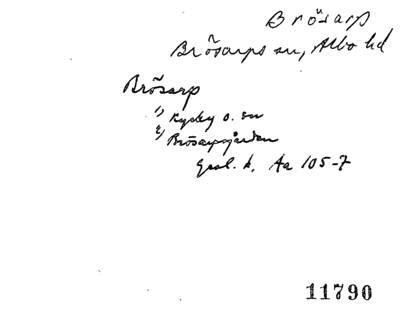 Brösarp
Brösarps sn, Albo hd
Brösarp
1) Kyrkby o. sn
2) Brösarpsgården
Geol. k. Aa 105-7
11790